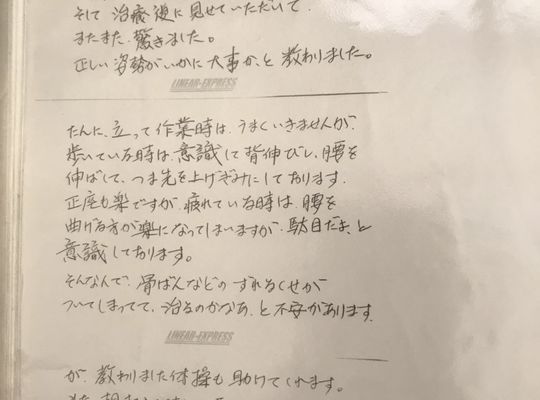 そして 治療後に見せていただいて、
またまた、驚きました。
正しい姿勢がいかに大事か、と教わりました。
LINEAR-EXPRESS
たんに、立って作業時は、うまくいきませんが、
歩いている時は、意識して背伸びし、腰を
伸ばして、つま先を上げぎみにしております。
正座も楽ですが、疲れている時は、腰を
曲げる方が楽になってしまいますが、駄目だま、と
意識しております。
そんなんで、骨ばんなどの ずれるくせが
ついてしまってて、治るのかなあ、と不安があります
LINEAR-EXPRESS
が、教わりました体操も助けてくれます。